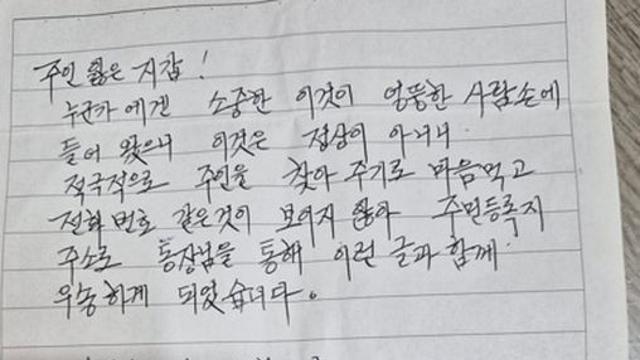 주인 잃은 지갑!
누군가에겐 소중한 이것이 엉뚱한 사람손에
들어 왔으니 이것은 정상이 아니니
적극적으로 주인을 찾아 주기로 마음먹고
전화 번호 같은것이 보이지 않아 주민등록지
주소로 통장님을 통해 이런 글과 함께
우송하게 되었습니다.